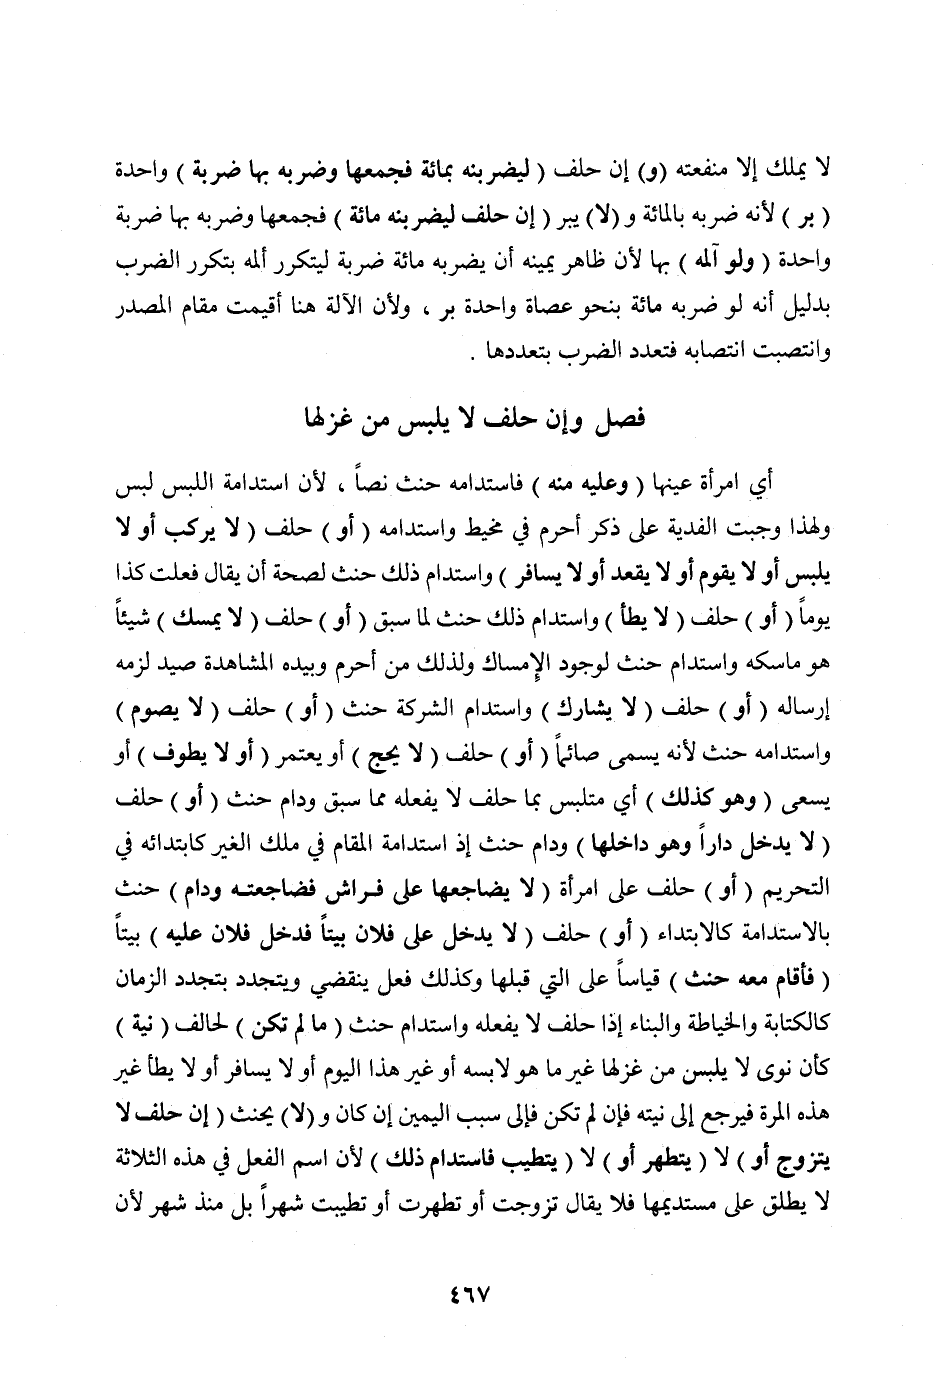 لا يملك إلا منفعته (و) إن حلف ( ليضربنه بمائة فجمعها وضربه بها ضربة ) واحدة
( بر ) لأنه ضربه بالمائة و (لا) يبر ( إن حلف ليضربنه مائة ) فجمعها وضربه بها ضربة
واحدة ( ولو آلمه ) بها لأن ظاهر يمينه أن يضربه مائة ضربة ليتكرر ألمه بتكرر الضرب
بدليل أنه لو ضربه مائة بنحو عصاة واحدة بر ، ولأن الآلة هنا أقيمت مقام المصدر
وانتصبت انتصابه فتعدد الضرب بتعددها .
فصل وإن حلف لا يلبس من غزلها
أي امرأة عينها ( وعليه منه ) فاستدامه حنث نصاً ، لأن استدامة اللبس لبس
ولهذا وجبت الفدية على ذكر أحرم في مخيط واستدامه ( أو ) حلف ( لا يركب أو لا
يلبس أو لا يقوم أو لا يقعد أو لا يسافر ) واستدام ذلك حنث لصحة أن يقال فعلت كذا
يوماً ( أو ) حلف ( لا يطأ ) واستدام ذلك حنث لما سبق ( أو ) حلف ( لا يمسك ) شيئاً
هو ماسكه واستدام حنث لوجود الإمساك ولذلك من أحرم وبيده المشاهدة صيد لزمه
إرساله ( أو ) حلف ( لا يشارك ) واستدام الشركة حنث ( أو ) حلف ( لا يصوم )
واستدامه حنث لأنه يسمى صائماً ( أو ) حلف ( لا يحج ) أو يعتمر ( أو لا يطوف ) أو
يسعى ( وهو كذلك ) أي متلبس بما حلف لا يفعله مما سبق ودام حنث ( أو ) حلف
( لا يدخل داراً وهو داخلها ) ودام حنث إذ استدامة المقام في ملك الغير كابتدائه في
التحريم ( أو ) حلف على امرأة ( لا يضاجعها على فراش فضاجعته ودام ) حنث
بالاستدامة كالابتداء ( أو ) حلف ( لا يدخل على فلان بيتاً فدخل فلان عليه ) بيتاً
( فأقام معه حنث ) قياساً على التي قبلها وكذلك فعل ينقضي ويتجدد بتجدد الزمان
كالكتابة والخياطة والبناء إذا حلف لا يفعله واستدام حنث ( ما لم تكن ) لحالف ( نية )
كأن نوى لا يلبس من غزلها غير ما هو لابسه أو غير هذا اليوم أو لا يسافر أو لا يطأ غير
هذه المرة فيرجع إلى نيته فإن لم تكن فإلى سبب اليمين إن كان و (لا) يحنث ( إن حلف لا
يتزوج أو ) لا ( يتطهر أو ) لا ( يتطيب فاستدام ذلك ) لأن اسم الفعل في هذه الثلاثة
لا يطلق على مستديمها فلا يقال تزوجت أو تطهرت أو تطيبت شهراً بل منذ شهر لأن
٤٦٧